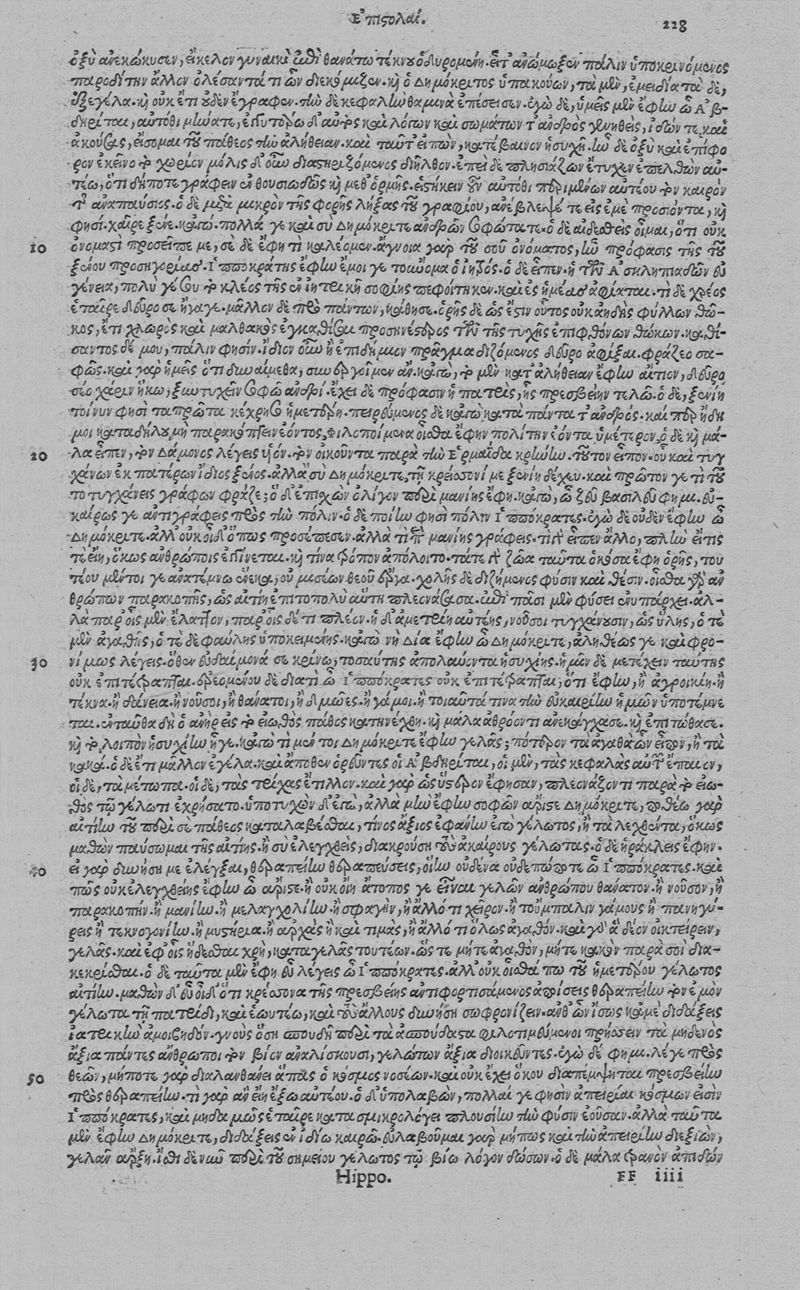 Ἐπιστολαί. 228
ὀξὺ ἀνεκώκυσεν, εἴκελον γυναικὶ ἐπὶ θανάτῳ τέκνου ὀδυρομένῃ. εἶτ' ἀνώμωξεν πάλιν ὑποκρινόμενος
παροδίτην ἄλλον ὀλέσαντά τι ὧν διεκόμιζεν. κỳ ὁ Δημόκριτος ὑπακούων, τὰ μὲν, ἐμειδία τὰ δὲ,
ἐξεγέλα. καὶ οὐκ ἔτι οὐδὲν ἔγραφεν. τὴν δὲ κεφαλὴν θαμινὰ ἐπέσεισεν. ἐγὼ δὲ, ὑμεῖς μὲν ἔφην ὦ Ἀβ-
δηρῖται, αὐτόθι μίμνατε, ἐγγυτέρω δ' αὐτὸς καὶ λόγων καὶ σωμάτων τἀνδρὸς γενηθεὶς, ἰδών τε καὶ
ἀκούσας, εἴσομαι τοῦ πάθεος τὴν ἀλήθειαν. καὶ ταῦτ' εἰπὼν, κατέβαινον ἡσυχῆ. ἦν δὲ ὀξὺ καὶ ἐπίφο
ρον ἐκεῖνο τὸ χωρίον μόλις δ' οὖν διαστηριζόμενος διῆλθον. ἐπεὶ δὲ πλησιάζων ἔτυχεν ἐπελθὼν αὐ-
τέῳ, ὅτι δήποτε γράφειν ἐνθουσιωδῶς καὶ μεθ' ὁρμῆς. εἱστήκειν οὖν αὐτόθι περιμένων αὐτέου τὸν καιρὸν
τῆς ἀναπαύσιος. ὁ δὲ μετὰ μικρὸν τῆς φορῆς λήξας τοῦ γραφίου, ἀνέβλεψέ τε εἰς ἐμὲ προσιόντα, καὶ
φησὶ. χαῖρε ξένε. κἀγὼ. πολλά γε καὶ σὺ Δημόκριτε ἀνδρῶν σοφώτατε. ὁ δὲ αἰδεσθεὶς οἶμαι, ὅτι οὐκ
10 ὀνομαστὶ προσεῖπέ με, σὲ δὲ ἔφη τί καλέομεν. ἄγνοια γὰρ τοῦ σοῦ ὀνόματος, ἦν πρόφασις τῆς τοῦ
ξένου προσηγορίας. Ἱπποκράτης ἔφην ἔμοι γε τοὔνομα ὁ ἰητρός. ὁ δὲ εἶπεν. ἡ τῶν Ἀσκληπιαδῶν εὐ
γένεια, πολύ γέ σου τὸ κλέος τῆς ἐν ἰητρικῇ σοφίης πεφοίτηκεν. καὶ ἐς ἡμέας ἀφῖκται. τί δὲ χρέος
ἑταῖρε δεῦρό σε ἤγαγε. μᾶλλον δὲ πρὸ πάντων, κάθησο. ὁρῇς δὲ ὡς ἔστιν οὗτος οὐκ ἀηδὴς φύλλων θῶ-
κος, ἔτι χλωρὸς καὶ μαλθακὸς ἐγκαθίσαι προσηνέστερος τῶν τῆς τύχης ἐπιφθόνων θώκων. καθί-
σαντος δέ μου, πάλιν φησὶν. ἴδιον οὖν ἢ ἐπιδήμιον πρᾶγμα διζήμενος δεῦρο ἀφῖξαι. φράζεο σα-
φῶς. καὶ γὰρ ἡμεῖς ὅτι δυναίμεθα, συνεργοῖμεν ἂν. κἀγὼ, τὸ μὲν κατ' ἀλήθειαν ἔφην αἴτιον, δεῦρο
σέο χάριν ἥκω, ξυντυχεῖν σοφῷ ἀνδρί. ἔχει δὲ πρόφασιν ἡ πατρὶς, ἧς πρεσβείην τελῶ. ὁ δὲ, ξενίῃ
τοίνυν φησὶ τὰ πρῶτα κέχρησο ἡμετέρῃ. πειρώμενος δὲ κἀγὼ κατὰ πάντα τἀνδρὸς. καίπερ ἤδη
μοι καταδήλου μὴ παρακόπτειν ἐόντος, Φιλοποίμενα οἶσθα ἔφην πολίτην ἐόντα ὑμέτερον. ὁ δὲ καὶ μά-
20 λα εἶπεν, τὸν Δάμονος λέγεις υἱὸν. τὸν οἰκοῦντα παρὰ τὴν Ἑρμαΐδα κρήνην. τοῦτον εἶπον. οὗ καὶ τυγ
χάνων ἐκ πατέρων ἴδιος ξένος. ἀλλὰ σὺ Δημόκριτε, τῇ κρείσσονί με ξενίῃ δέχευ. καὶ πρῶτόν γε τί τοῦ
το τυγχάνεις γράφων φράζε; ὁ δ' ἐπισχὼν ὀλίγον περὶ μανίης ἔφη. κἀγὼ, ὦ ζεῦ βασιλεῦ φημι. εὐ-
καίρως γε ἀντιγράφεις πρὸς τὴν πόλιν. ὁ δὲ ποίην φησὶ πόλιν Ἱππόκρατες. ἐγὼ δὲ οὐδὲν ἔφην ὦ
Δημόκριτε. ἀλλ' οὐκ οἶδ' ὅπως προσέπεσεν. ἀλλὰ τί περὶ μανίης γράφεις. τί γὰρ εἶπεν ἄλλο, πλὴν εἴ τις
τε εἴη, ὅκως ἀνθρώποις ἐγγίνεται. καὶ τίνα τρόπον ἀπόλοιτο. τά τε γὰρ ζῶα ταῦτα ὁκόσα ἔφη ὁρῇς, του
τέου μέντοι γε ἀνατέμνω εἵνεκα, οὐ μισέων θεοῦ ἔργα. χολῆς δὲ διζήμενος φύσιν καὶ θέσιν. οἶσθα γὰρ ἀν
θρώπων παρακοπῆς, ὡς αἰτίη ἐπιτοπολὺ αὕτη πλεονάζουσα. ἐπὶ πᾶσι μὲν φύσει ἐνυπάρχει. ἀλ-
λὰ παρ' οἷς μὲν ἔλαττον, παρ' οἷς δέ τι πλέον. ἡ δ' ἀμετρίη αὐτέης, νοῦσοι τυγχάνουσιν, ὡς ὕλης, ὁτὲ
μὲν ἀγαθῆς, ὁτὲ δὲ φαύλης ὑποκειμένης. κἀγὼ νὴ Δία ἔφην ὦ Δημόκριτε, ἀληθέως γε καὶ φρο-
30 νίμως λέγεις. ὅθεν εὐδαίμονά σε κρίνω, τοσαύτης ἀπολαύοντα ἡσυχίης. ἡμῖν δὲ μετέχειν ταύτης
οὐκ ἐπιτέτραπται. ἐρεομένου δὲ διατί ὦ Ἱππόκρατες οὐκ ἐπιτέτραπται; ὅτι ἔφην, ἢ ἀγροὶ κεῖν. ἢ
τέκνα. ἢ δάνεια. ἢ νοῦσοι, ἢ θάνατοι, ἢ δμῶες. ἢ γάμοι. ἢ τοιαῦτά τινα τὴν εὐκαιρίην ἡμῶν ὑποτέμνε
ται. ἐνταῦθα δὴ ὁ ἀνὴρ εἰς τὸ εἰωθὸς πάθος κατηνέχθη. καὶ μάλα ἀθρόον τι ἀνεκάγχασε. καὶ ἐπιτώθασε.
καὶ τὸ λοιπὸν ἡσυχίην ἦγε. κἀγὼ τί μέντοι Δημόκριτε ἔφην γελᾷς; πότερον τὰ ἀγαθὰ ὧν εἶπον, ἢ τὰ
κακά. ὁ δὲ ἔτι μᾶλλον ἐγέλα. καὶ ἄποθεν ὁρεῦντες οἱ Ἀβδηρῖται, οἱ μὲν, τὰς κεφαλὰς αὐτῶν ἔπαιον,
οἱ δὲ, τὰ μέτωπα. οἱ δὲ, τὰς τρίχας ἔτιλλον. καὶ γὰρ ὡς ὕστερον ἔφησαν, πλεονάζοντι παρὰ τὸ εἰω-
θὸς τῷ γέλωτι ἐχρήσατο. ὑποτυχὼν δ' ἐγὼ, ἀλλὰ μὴν ἔφην σοφῶν ἄριστε Δημόκριτε, ποθέω γὰρ
αἰτίην τοῦ περὶ σε πάθεος καταλαβέσθαι, τίνος ἄξιος ἐφάνην ἐγὼ γέλωτος, ἢ τὰ λεχθέντα, ὅκως
μαθὼν παύσωμαι τῆς αἰτίης. ἢ σὺ ἐλεγχθεὶς, διακρούσῃ τοὺς ἀκαίρους γέλωτας. ὁ δὲ ἡράκλεις ἔφη.
40 εἰ γὰρ δυνήσῃ με ἐλέγξαι, θεραπείην θεραπεύσεις, οἵην οὐδένα οὐδεπώποτε ὦ Ἱππόκρατες. καὶ
πῶς οὐκ ἐλεγχθείης ἔφην ὦ ἄριστε. ἢ οὐκ οἴῃ ἄτοπός γε εἶναι γελῶν ἀνθρώπου θάνατον. ἢ νοῦσον, ἢ
παρακοπὴν. ἢ μανίην. ἢ μελαγχολίην. ἢ σφαγὴν, ἢ ἄλλό τι χεῖρον. ἢ τοὔμπαλιν γάμους ἢ πανηγύ-
ρεις ἢ τεκνογονίην. ἢ μυστήρια. ἢ ἀρχὰς ἢ καὶ τιμὰς, ἢ ἄλλό τι ὅλως ἀγαθὸν. καὶ γὰρ ἃ δέον οἰκτείρειν,
γελᾷς. καὶ ἐφ' οἷς ἥδεσθαι χρὴ, καταγελᾷς τουτέων. ὥστε μήτε ἀγαθὸν, μήτε κακὸν παρὰ σοὶ δια-
κεκρίσθαι. ὁ δὲ ταῦτα μὲν ἔφη εὖ λέγεις ὦ Ἱππόκρατες. ἀλλ' οὐκ οἶσθά πω τοῦ ἡμετέρου γέλωτος
αἰτίην. μαθὼν δ' εὖ οἶδ' ὅτι κρέσσονα τῆς πρεσβείης ἀντιφορτισάμενος ἀποίσεις θεραπείην τὸν ἐμὸν
γέλωτα τῇ πατρίδι, καὶ ἑωυτέῳ, καὶ τοὺς ἄλλους δυνήσῃ σωφρονίζειν. ἀνθ' ὧν ἴσως καμὲ διδάξεις
ἰατρικὴν ἀμοιβηδὸν. γνοὺς ὅσῃ σπουδῇ περὶ τὰ ἀσπούδαστα φιλοτιμεύμενοι πρήσσειν τὰ μηδενὸς
ἄξια πάντες ἄνθρωποι τὸν βίον ἀναλίσκουσι, γελώτων ἄξια διοικεῦντες. ἐγὼ δὲ φημὶ. λέγε πρὸς
50 θεῶν, μήποτε γὰρ διαλανθάνει ἅπας ὁ κόσμος νοσέων. καὶ οὐκ ἔχει ὅκου διαπέμψηται πρεσβείην
πρὸς θεραπείην. τί γὰρ ἂν εἴη ἔξω αὐτέου. ὁ δ' ὑπολαβὼν, πολλαί γε φησὶν ἀπειρίαι κόσμων εἰσὶν
Ἱππόκρατες, καὶ μηδαμῶς ἑταῖρε κατασμικρολόγει πλουσίην τὴν φύσιν ἐοῦσαν. ἀλλὰ ταῦτα
μὲν ἔφην Δημόκριτε, διδάξεις ἐν ἰδίῳ καιρῷ. εὐλαβοῦμαι γὰρ μήπως καὶ τὴν ἀπειρίην διεξιὼν,
γελᾶν ἄρξῃ. ἴσθι δὲ νῦν περὶ τοῦ σημείου γέλωτος τῷ βίῳ λόγον δώσων. ὁ δὲ μάλα τρανὸν ἀπιδών
Hippo. FF iiii